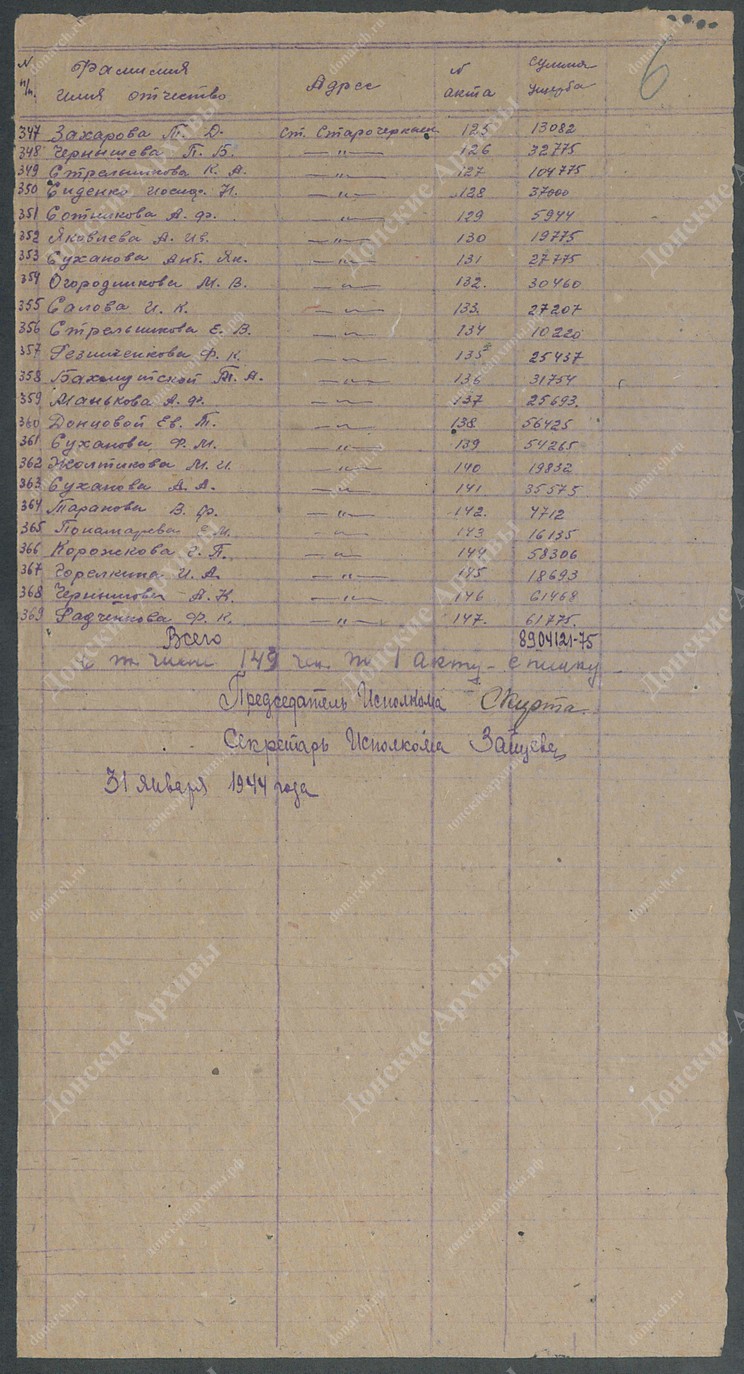 6
N п/п. Фамилия имя отчество Адрес N акта сумма ущерба
347 Захарова Т. Д. ст. Старочеркасск 125 13082
348 Чернышева П. Б. —"— 126 32775
349 Стрельникова К. А. —"— 127 104775
350 Сиденко Иосиф Н. —"— 128 37000
351 Сотникова А. Ф. —"— 129 5944
352 Яковлева А. Ив. —"— 130 19775
353 Суханова Ант. Як. —"— 131 27775
354 Огородникова М. В. —"— 132. 30460
355 Салова И. К. —"— 133. 27207
356 Стрельникова Е. В. —"— 134 10220
357 Ф. К. —"— 135 25437
358 Бахмутской М. А. —"— 136 31754
359 Манькова А. Ф. —"— 137 25693.
360 Донцовой Ев. Т. —"— 138 56425
361 Суханова Ф. М. —"— 139 54265
362 Желтикова М. И. —"— 140 19832
363 Суханова А. А. —"— 141 35575
364 Таранова В. Ф. —"— 142. 4712
365 Пономарева Е. М. —"— 143 16135
366 Корожкова Е. П. —"— 144 58306
367 Горелкина И. А. —"— 145 18693
368 Чернышова А. К. —"— 146 61468
369 Радченкова Ф. К. —"— 147. 61775.
Всего 8904121-75
в т. числе 149 чел. по 1 акту-списку
Председатель Исполкома Скирта
Секретарь Исполкома Зайцева
31 января 1944 года
Донские Архивы
donarch.ru
донскиеархивы.рф